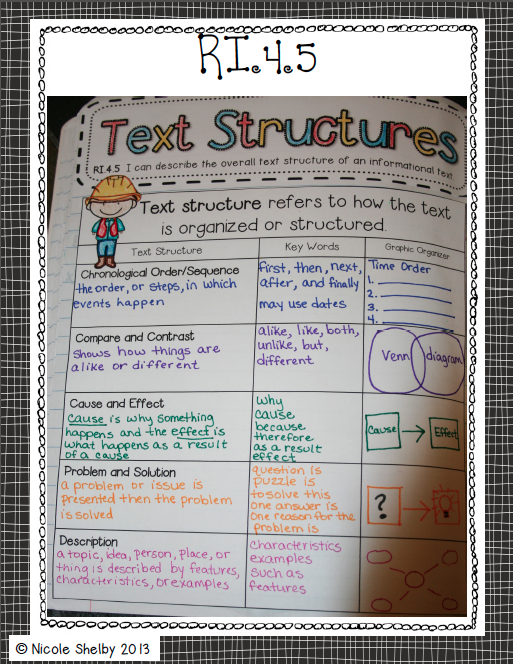 RI.4.5
Text Structures
RI.4.5 I can describe the overall text structure of an informational text
Text structure refers to how the text
is organized or structured.
Text Structure
Key Words
Graphic Organizer
Chronological Order/Sequence
the order, or steps, in which
events happen
first, then, next,
after, and finally
may use dates
Time Order
1.
2.
3.
4.
Compare and Contrast
Shows how things are
alike or different
alike, like, both,
unlike, but,
different
Venn diagram
Cause and Effect
Cause is why something
happens and the effect is
what happens as a result
of a cause
why
cause
because
therefore
as a result
effect
Cause
Effect
Problem and Solution
a problem or issue is
presented then the problem
is solved
question is
puzzle is
to solve this
one answer is
one reason for the
problem is
?
Description
a topic, idea, person, place, or
thing is described by features,
characteristics, or examples
Characteristics
examples
such as
features
© Nicole Shelby 2013